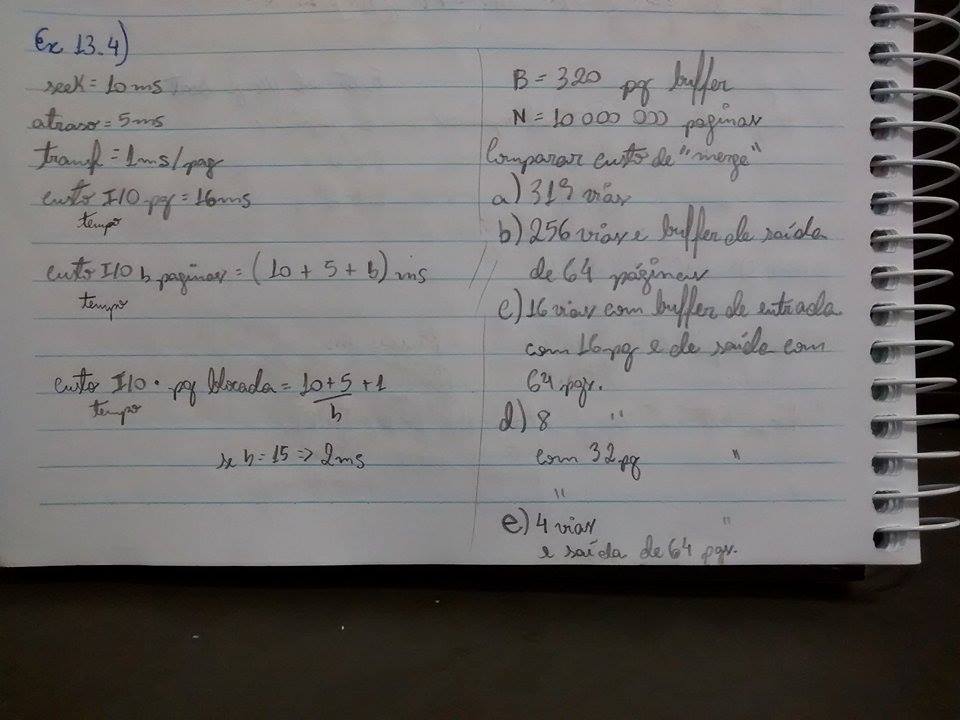 Ex 13.4)
seek = 10ms
atraso = 5ms
transf = 1ms/pag
custo I/O pg = 16ms
tempo
custo I/O b paginas = (10 + 5 + b) ms
tempo
custo I/O . pg blocada = 10+5 + 1
tempo b
se b = 15 => 2ms
B = 320 pg buffer
N = 10 000 000 paginas
Comparar custo de "merge"
a) 319 vias
b) 256 vias e buffer de saída
de 64 páginas
c) 16 vias com buffer de entrada
com 16 pg e de saída com
64 pgs.
d) 8 "
com 32 pg "
"
e) 4 vias "
e saída de 64 pgs.